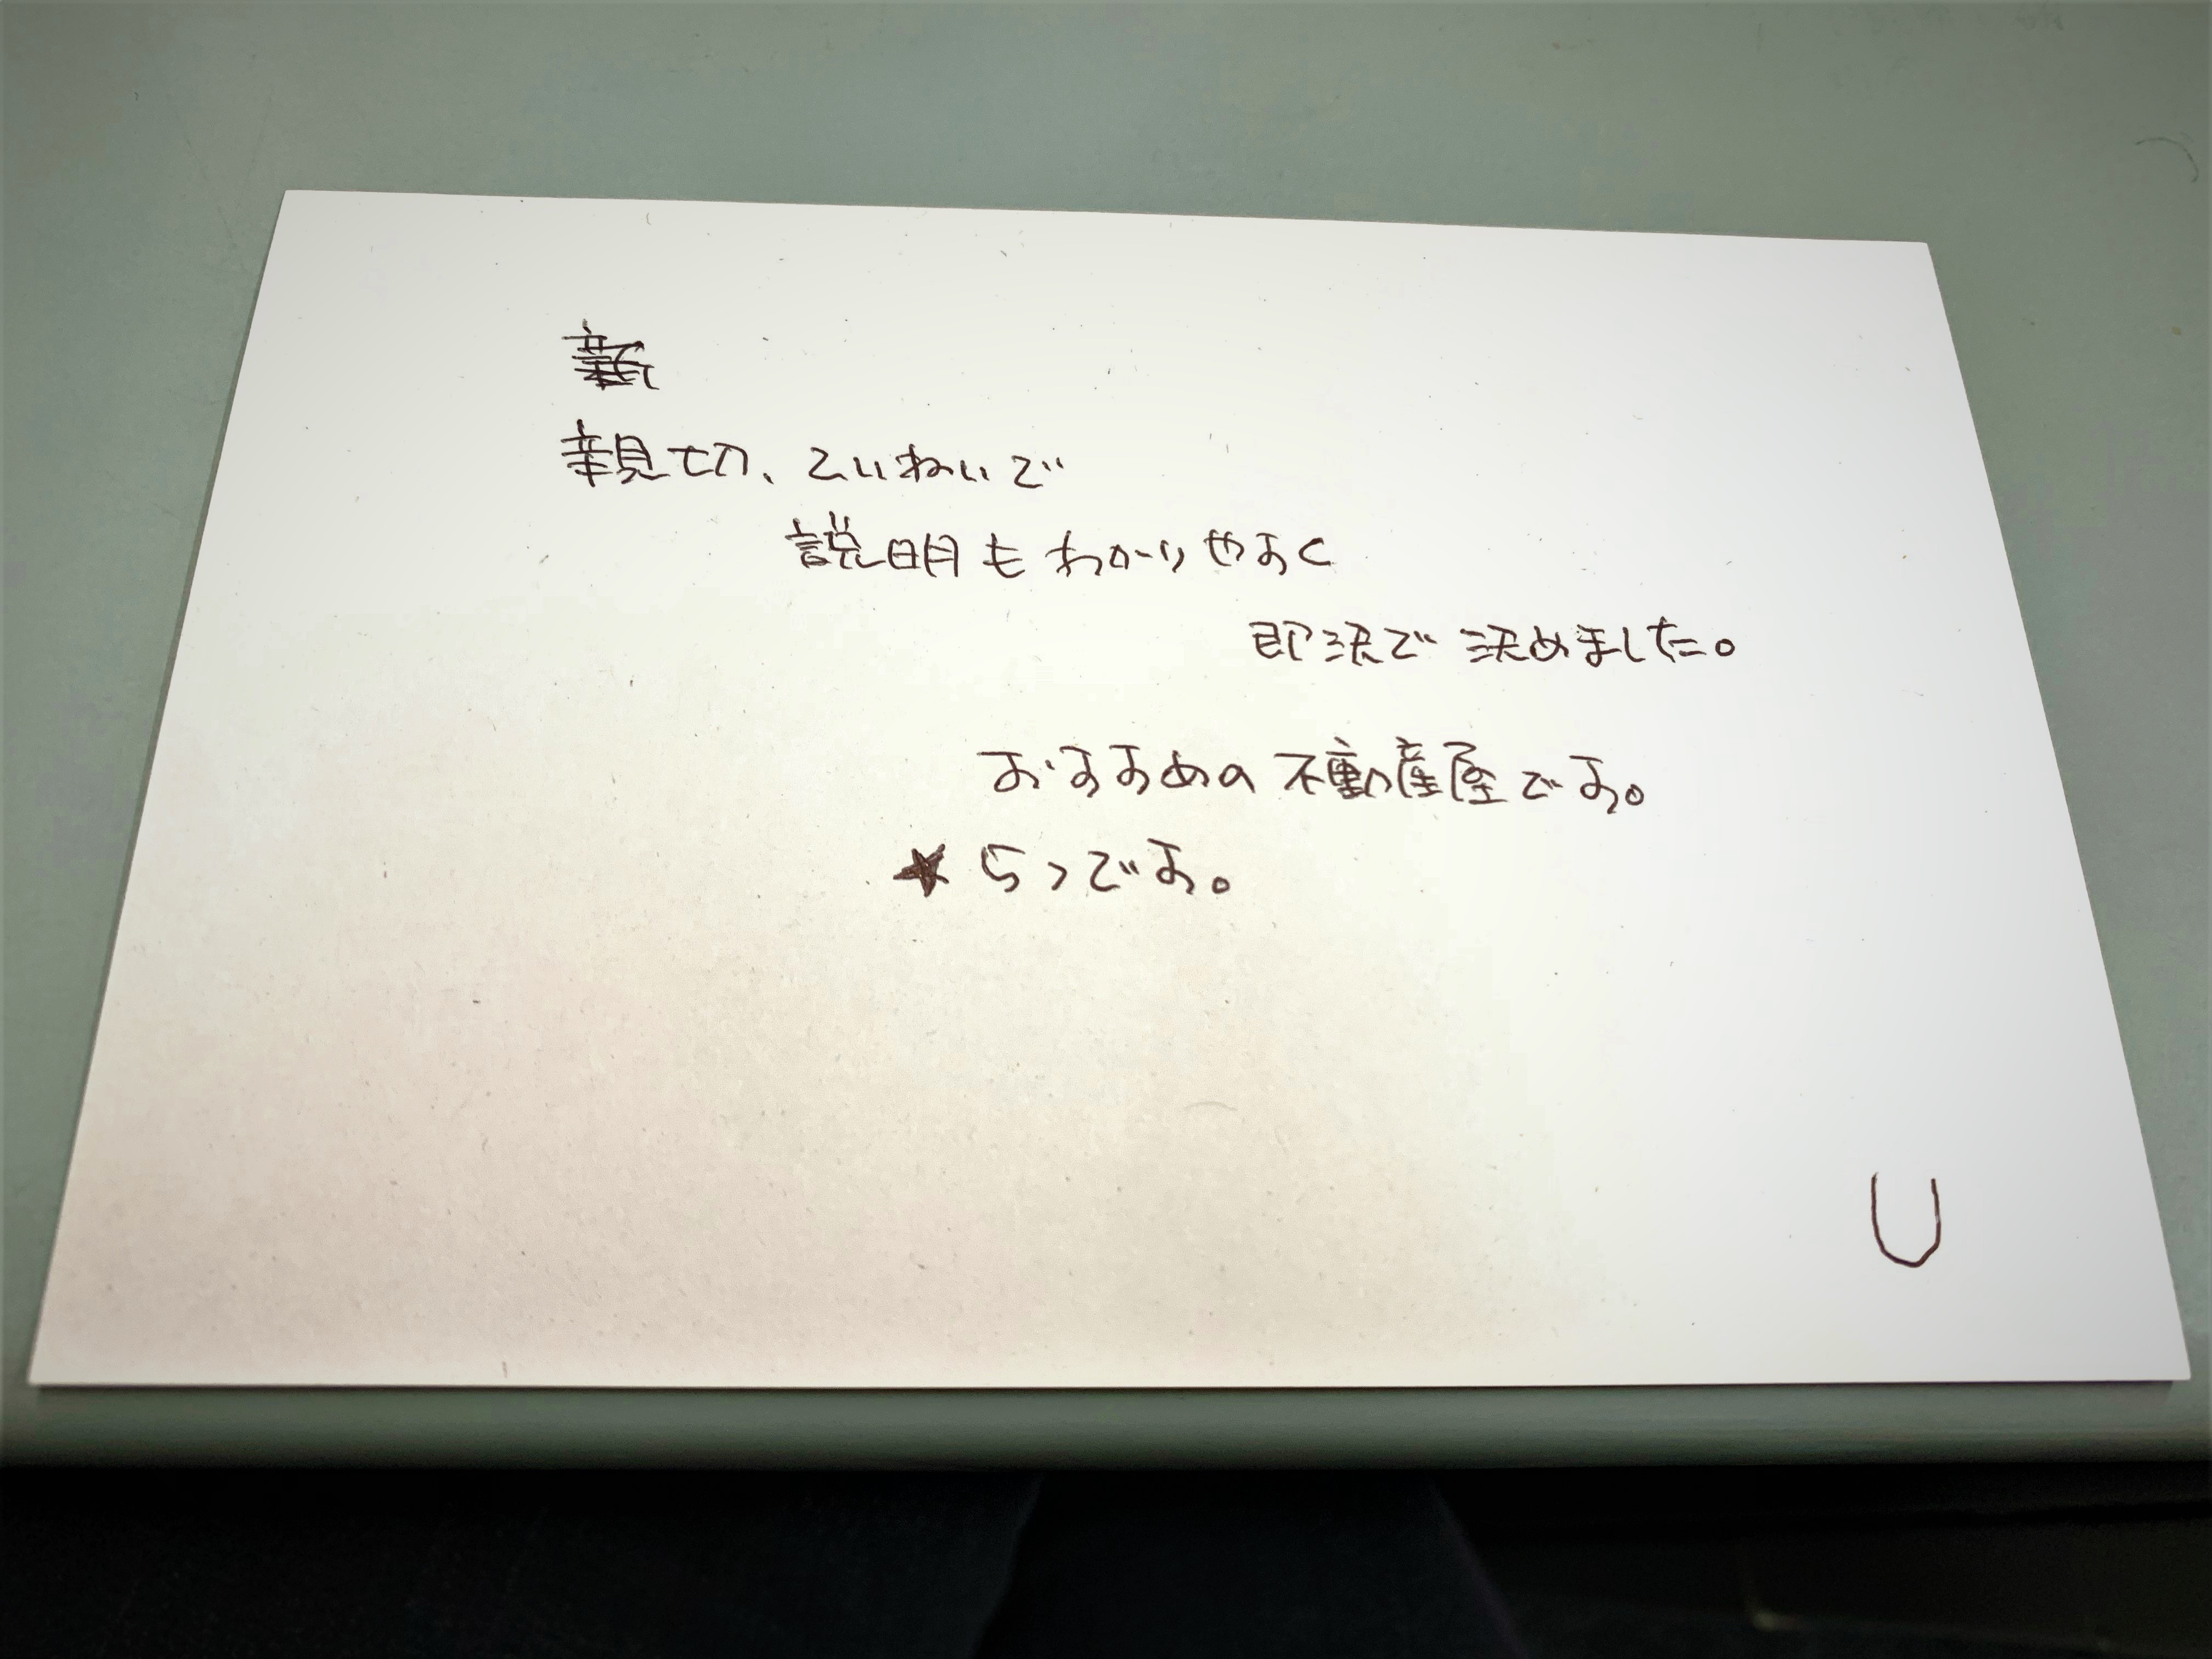 親切、ていねいで
説明もわかりやすく
即決で決めました。
おすすめの不動産屋です。
★5つです。
U